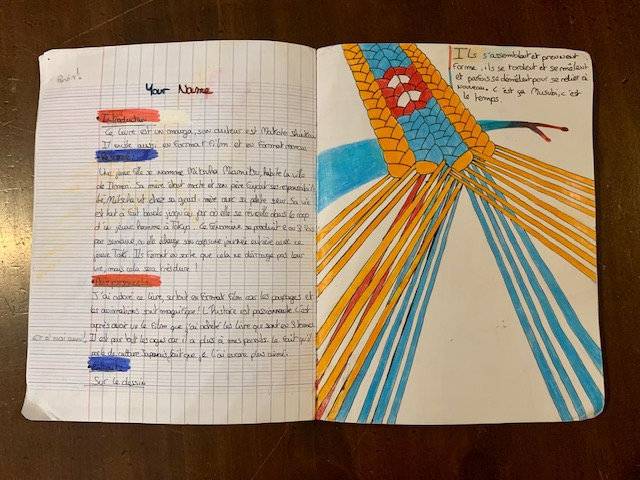 Your Name
Introduction
Ce livre est un manga, son auteur est Makoto Shinkai
Il existe aussi en format film et en format
Résumé
Une jeune fille se nommant Mitsuha Miamitsu, habite la ville
de Itomori. Sa mère étant morte et son père
Mitsuha vit chez sa grand-mère avec sa petite sœur. Sa vie
est tout à fait banale jusqu'au jour où elle se réveille dans le corps
d'un jeune homme à Tokyo. Ce phénomène se produit 2 ou 3 fois
par semaine, où elle échange son corps une journée entière avec ce
jeune Taki. Ils feront en sorte que cela ne dérange pas leur
vie, mais cela sera très dure !
J'ai adoré ce livre, surtout en format film car les paysages et
les animations sont magnifique ! L'histoire est passionnante. C'est
après avoir vu le film que j'ai acheté les livre qui sont en 3 tomes
Il est par tout les cas car il a plus à mes parents. Le fait qu'il
parle de culture Japonaise fait que je l'ai encore plus aimé.
Extrait
Sur le dessin
ILs s'assemblent et prennent
forme, ils se tordent et se mêlent
et parfois se démêlent pour se relier à
nouveau. C'est ça Musubi, c'est
le temps.